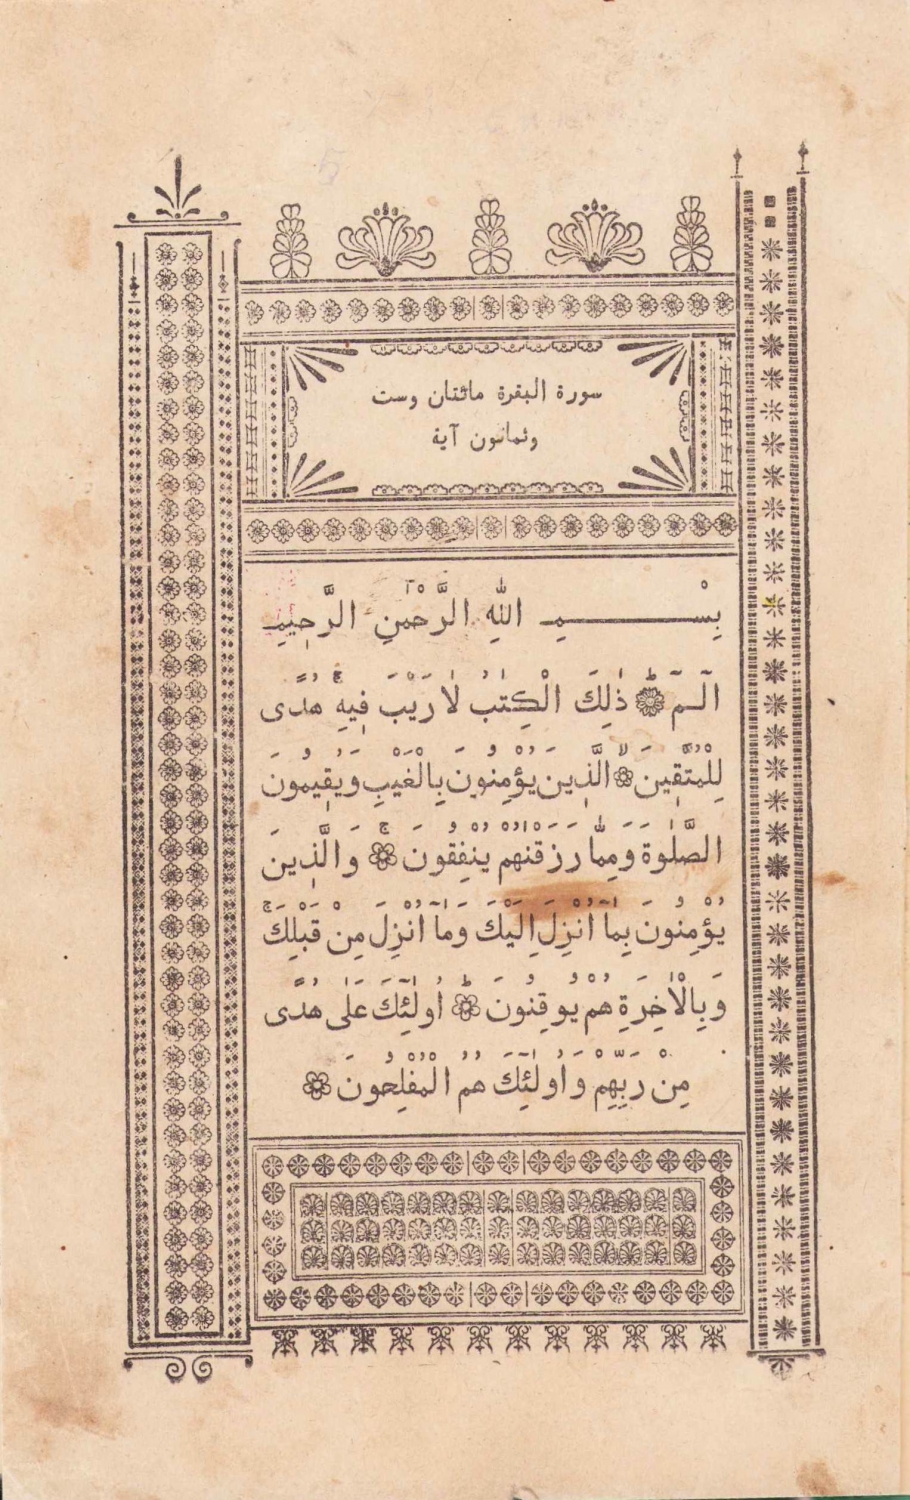 سورة البقرة مائتان وست
وثمانون آية
بِسْمِ اللّٰهِ الرَّحْمٰنِ الرَّحِيمِ
الٓمٓ ۚ ذٰلِكَ الْكِتٰبُ لَا رَيْبَ فِيهِ هُدًى
لِلْمُتَّقِينَ الَّذِينَ يُؤْمِنُونَ بِالْغَيْبِ وَيُقِيمُونَ
الصَّلٰوةَ وَمِمَّا رَزَقْنٰهُمْ يُنْفِقُونَ وَالَّذِينَ
يُؤْمِنُونَ بِمَآ اُنْزِلَ اِلَيْكَ وَمَآ اُنْزِلَ مِنْ قَبْلِكَ
وَبِالْاٰخِرَةِ هُمْ يُوقِنُونَ اُولٰٓئِكَ عَلٰى هُدًى
مِنْ رَبِّهِمْ وَاُولٰٓئِكَ هُمُ الْمُفْلِحُونَ